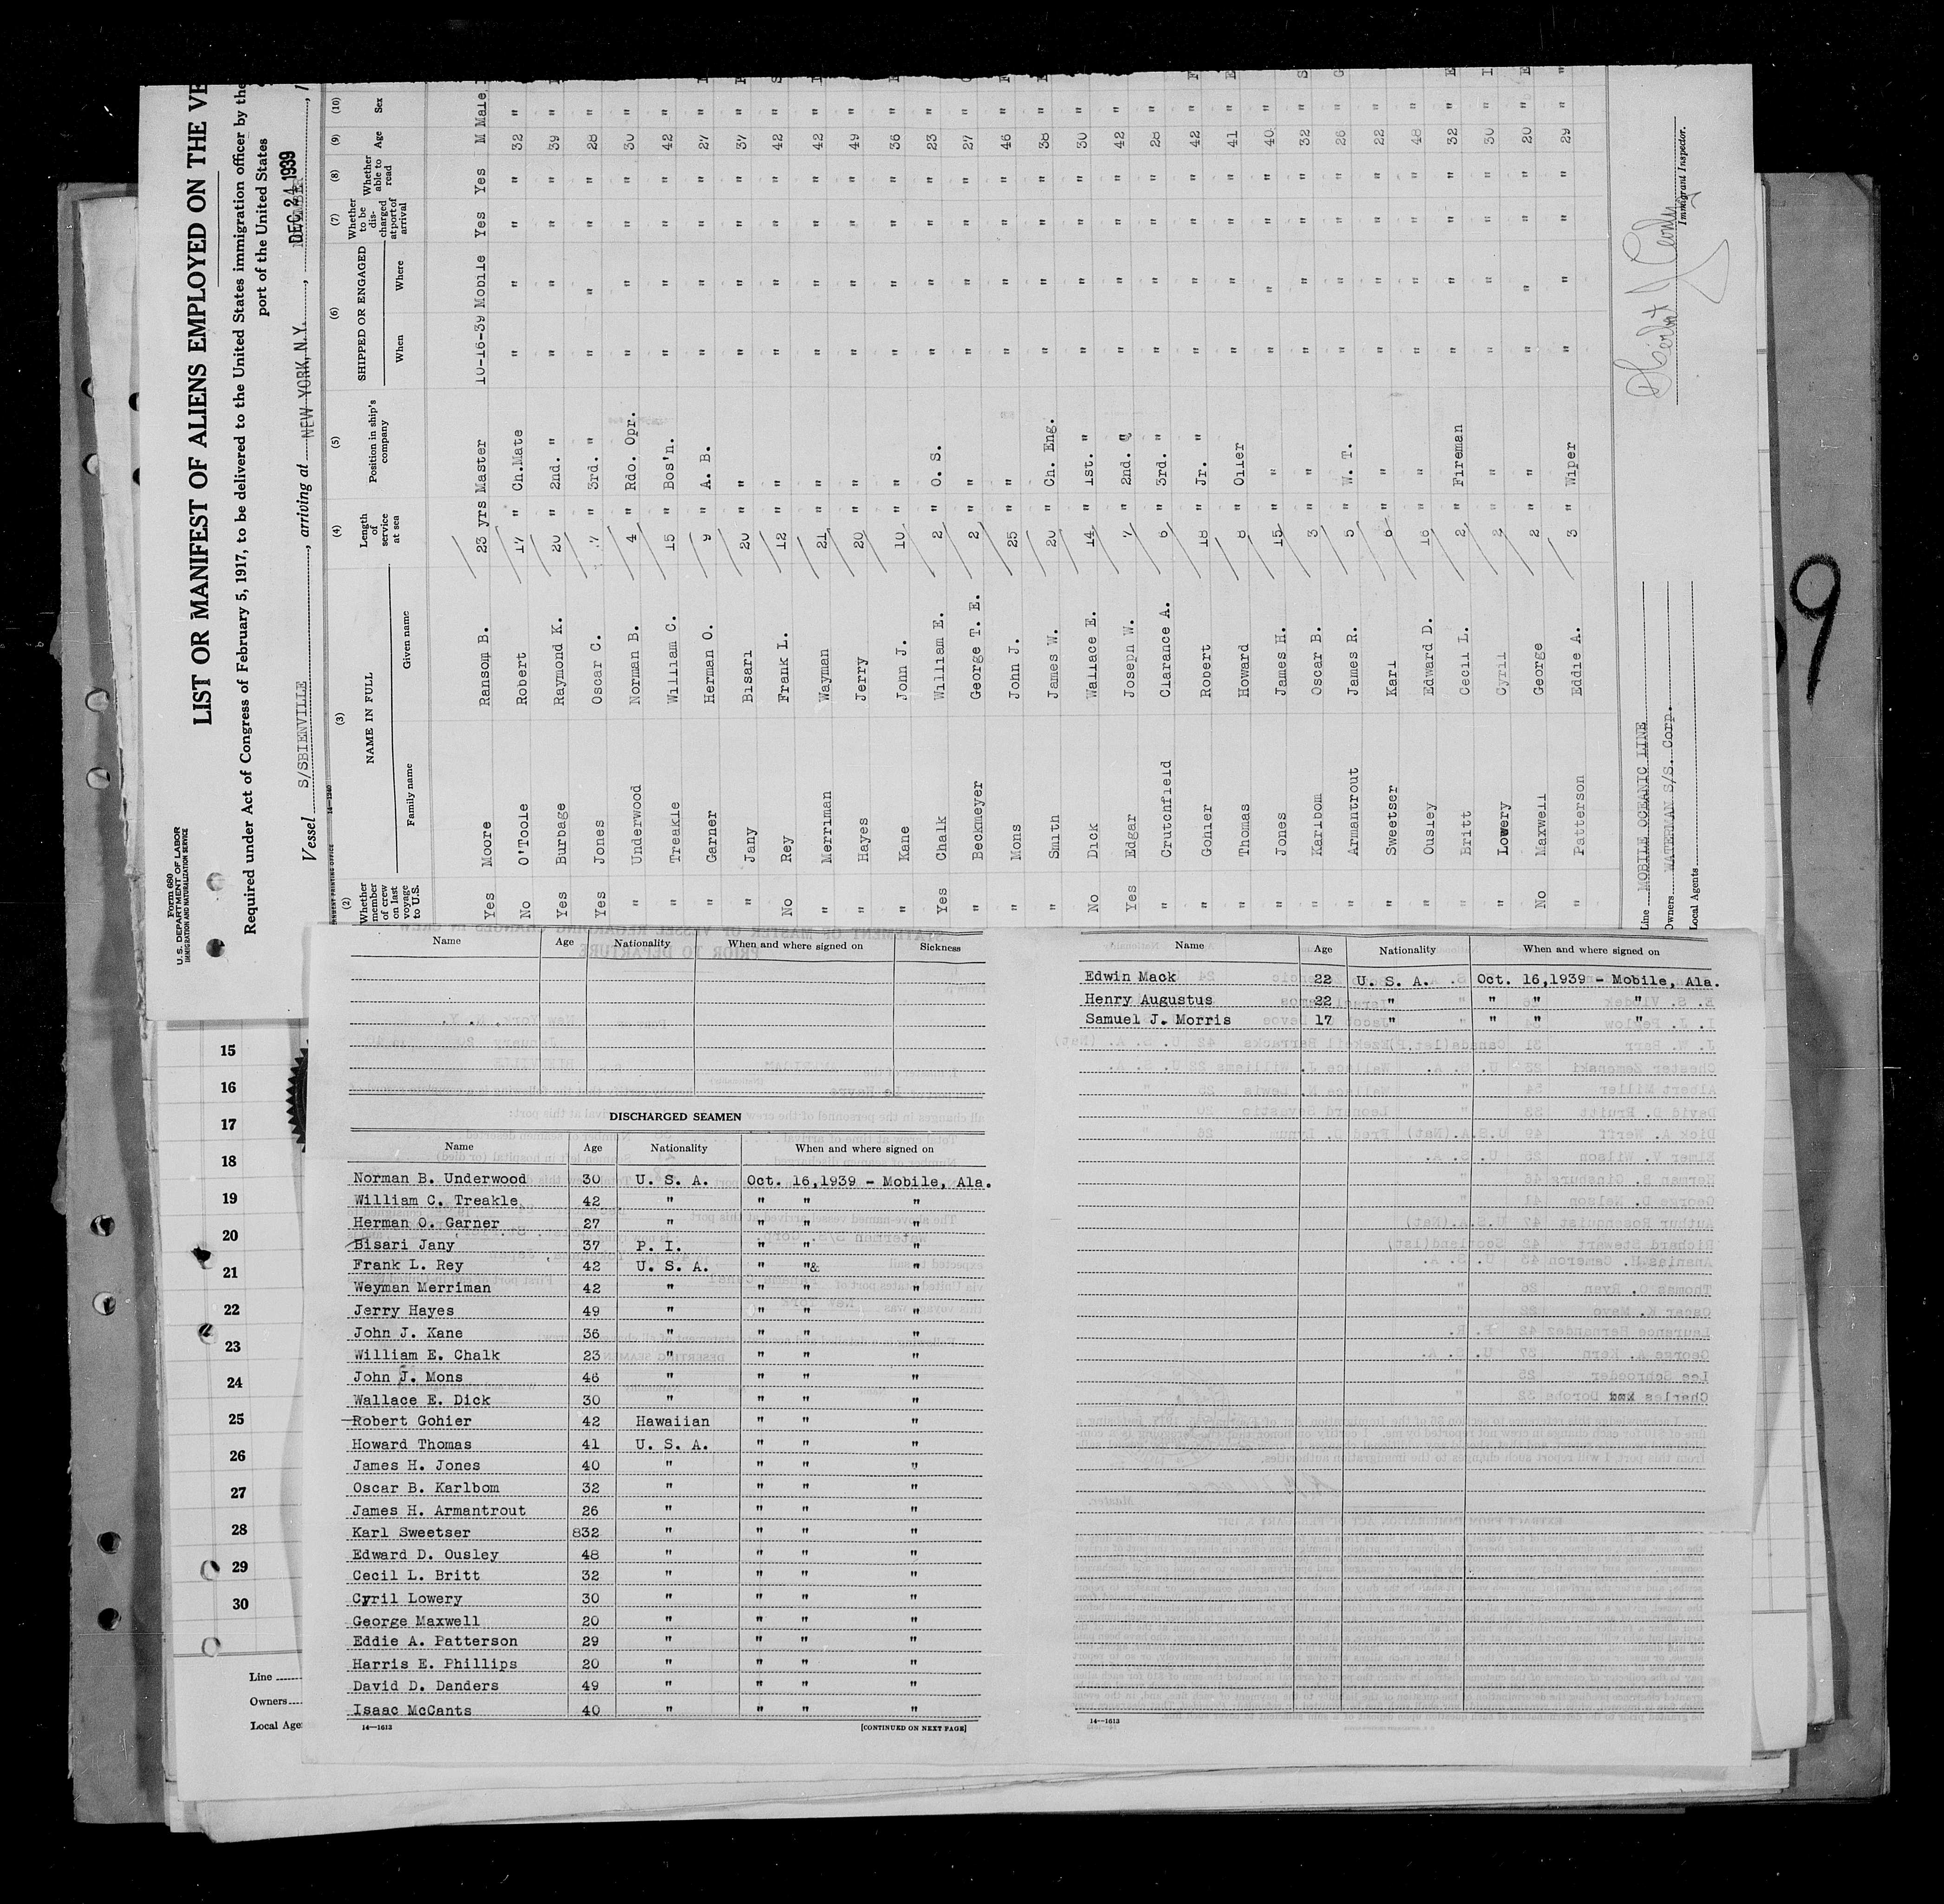 Form 680
U. S. DEPARTMENT OF LABOR
IMMIGRATION AND NATURALIZATION SERVICE
LIST OR MANIFEST OF ALIENS EMPLOYED ON THE VE
Required under Act of Congress of February 5, 1917, to be delivered to the United States immigration officer by the
port of the United States
Vessel S/SBIENVILLE, arriving at NEW YORK, N.Y., DEC 24 1939, 1
14—1240
(2) (3) (4) (5) (6) (7) (8) (9) (10)
Whether member of crew on last voyage to U.S.
NAME IN FULL
Family name Given name
Length of service at sea
Position in ship's company
SHIPPED OR ENGAGED
When Where
Whether to be discharged at port of arrival
Whether able to read
Age
Sex
Yes Moore Ransom B. 23 yrs Master 10-16-39 Mobile Yes Yes M Male
No O'Toole Robert 17 " Ch.Mate " " " " 32 "
Yes Burbage Raymond K. 20 " 2nd. " " " " " 39 "
Yes Jones Oscar C. 7 " 3rd. " " " " " 28 "
" Underwood Norman B. 4 " Rdo. Opr. " " " " 30 "
" Treakle William C. 15 " Bos'n. " " " " 42 "
" Garner Herman O. 9 " A. B. " " " " 27 "
" Jany Bisari 20 " " " " " " 37 "
No Rey Frank L. 12 " " " " " " 42 "
" Merriman Wayman 21 " " " " " " 42 "
" Hayes Jerry 20 " " " " " " 49 "
" Kane John J. 10 " " " " " " 36 "
Yes Chalk William E. 2 " O. S. " " " " 23 "
" Beckmeyer George T. E. 2 " " " " " " 27 "
" Mons John J. 25 " " " " " " 46 "
" Smith James W. 20 " Ch. Eng. " " " " 38 "
No Dick Wallace E. 14 " 1st. " " " " " 30 "
Yes Edgar Joseph W. 7 " 2nd. " " " " " 42 "
" Crutchfield Clarance A. 6 " 3rd. " " " " " 28 "
" Gohier Robert 18 " Jr. " " " " " 42 "
" Thomas Howard 8 " Oiler " " " " 41 "
" Jones James H. 15 " " " " " " 40 "
" Karlbom Oscar B. 3 " " " " " " 32 "
" Armantrout James R. 5 " W. T. " " " " 26 "
" Sweetser Karl 6 " " " " " " 22 "
" Ousley Edward D. 16 " " " " " " 48 "
" Britt Cecil L. 2 " Fireman " " " " 32 "
" Lowery Cyril 2 " " " " " " 30 "
No Maxwell George 2 " " " " " " 20 "
" Patterson Eddie A. 3 " Wiper " " " " 29 "
Line MOBILE OCEANIC LINE
Owners WATERMAN S/S. Corp.
Local Agents
Immigrant Inspector.
9
15
16
17
18
19
20
21
22
23
24
25
26
27
28
29
30
Line
Owners
Local Age
Name Age Nationality When and where signed on Sickness
DISCHARGED SEAMEN
Name Age Nationality When and where signed on
Norman B. Underwood 30 U. S. A. Oct. 16,1939 - Mobile, Ala.
William C. Treakle 42 " " " "
Herman O. Garner 27 " " " "
Bisari Jany 37 P. I. " " "
Frank L. Rey 42 U. S. A. " "& "
Weyman Merriman 42 " " " "
Jerry Hayes 49 " " " "
John J. Kane 36 " " " "
William E. Chalk 23 " " " "
John J. Mons 46 " " " "
Wallace E. Dick 30 " " " "
Robert Gohier 42 Hawaiian " " "
Howard Thomas 41 U. S. A. " " "
James H. Jones 40 " " " "
Oscar B. Karlbom 32 " " " "
James H. Armantrout 26 " " " "
Karl Sweetser 832 " " " "
Edward D. Ousley 48 " " " "
Cecil L. Britt 32 " " " "
Cyril Lowery 30 " " " "
George Maxwell 20 " " " "
Eddie A. Patterson 29 " " " "
Harris E. Phillips 20 " " " "
David D. Danders 49 " " " "
Isaac McCants 40 " " " "
14—1613 [CONTINUED ON NEXT PAGE]
Name Age Nationality When and where signed on
Edwin Mack 22 U. S. A. Oct. 16,1939 - Mobile, Ala.
Henry Augustus 22 " " " "
Samuel J. Morris 17 " " " "
14—1613